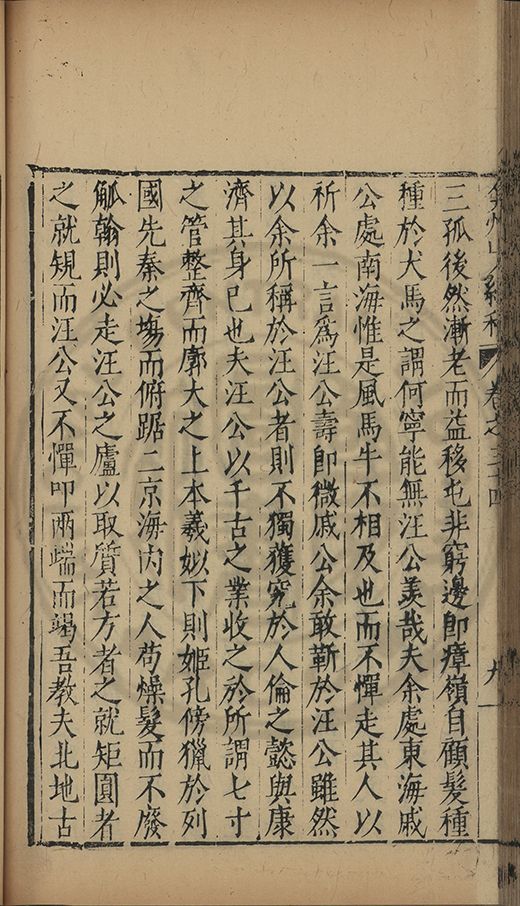 弇州山續稿 卷之三十四 九
三孤後然漸老而益移屯非窮邊即瘴嶺自顧髮種
種於犬馬之謂何寧能無汪公羨哉夫余處東海戚
公處南海惟是風馬牛不相及也而不憚走其人以
祈余一言為汪公壽即微戚公余敢靳於汪公雖然
以余所稱於汪公者則不獨獲究於人倫之懿與康
濟其身已也夫汪公以千古之業收之於所謂七寸
之管整齊而廓大之上本羲姒下則姬孔傍獵於列
國先秦之塲而俯踞二京海内之人苟燥髮而不廢
觚翰則必走汪公之廬以取質若方者之就矩圓者
之就規而汪公又不憚叩兩端而竭吾教夫北地古